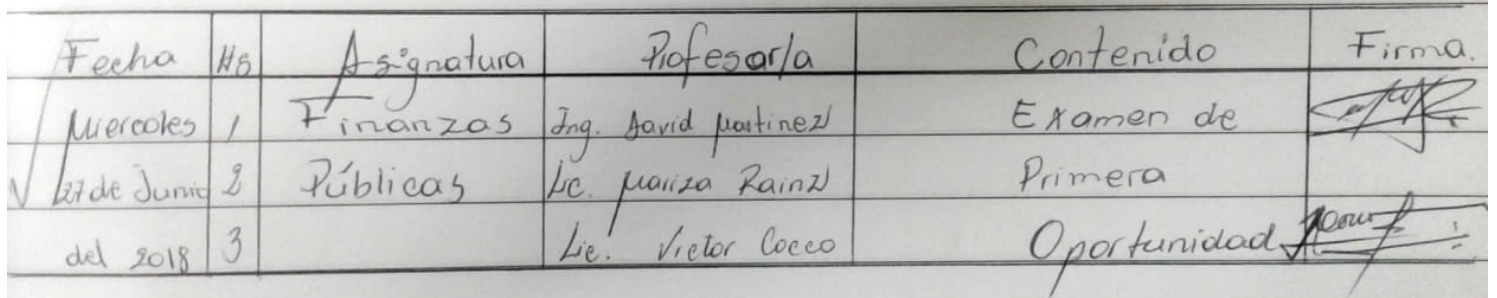 Fecha Hs Asignatura Profesor/a Contenido Firma.
Miercoles 1 Finanzas Ing. David Martinez Examen de
27 de Junio 2 Públicas Lic. Mariza Rainz Primera
del 2018 3 Lic. Victor Cocco Oportunidad